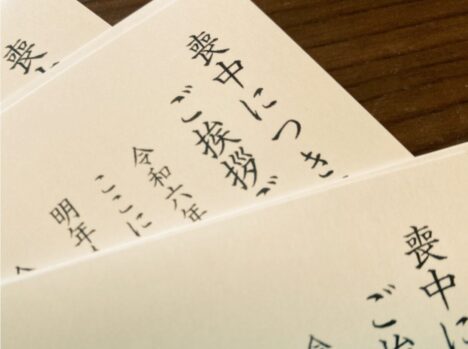 喪中につき
ご挨拶
令和六年
ここに
明年
喪中に
ご挨
喪